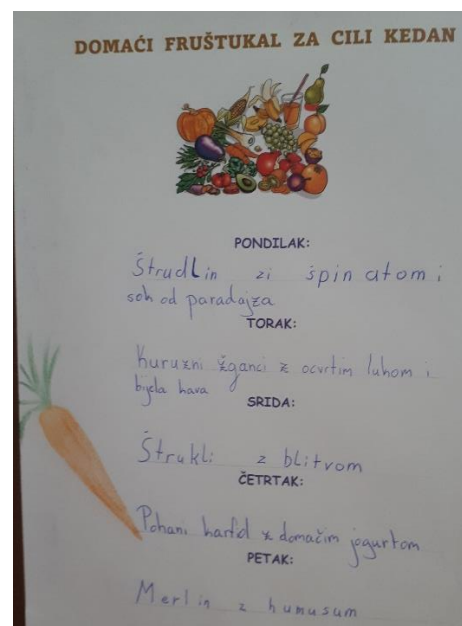 DOMAĆI FRUŠTUKAL ZA CILI KEDAN
PONDILAK:
Štrudlin zi špinatom i
soh od paradajza
TORAK:
Kuruzni žganci z ocvrtim luhom i
bijela hava
SRIDA:
Štrukli z blitvom
ČETRTAK:
Pohani harfol z domaćim jogurtom
PETAK:
Merlin z humusum